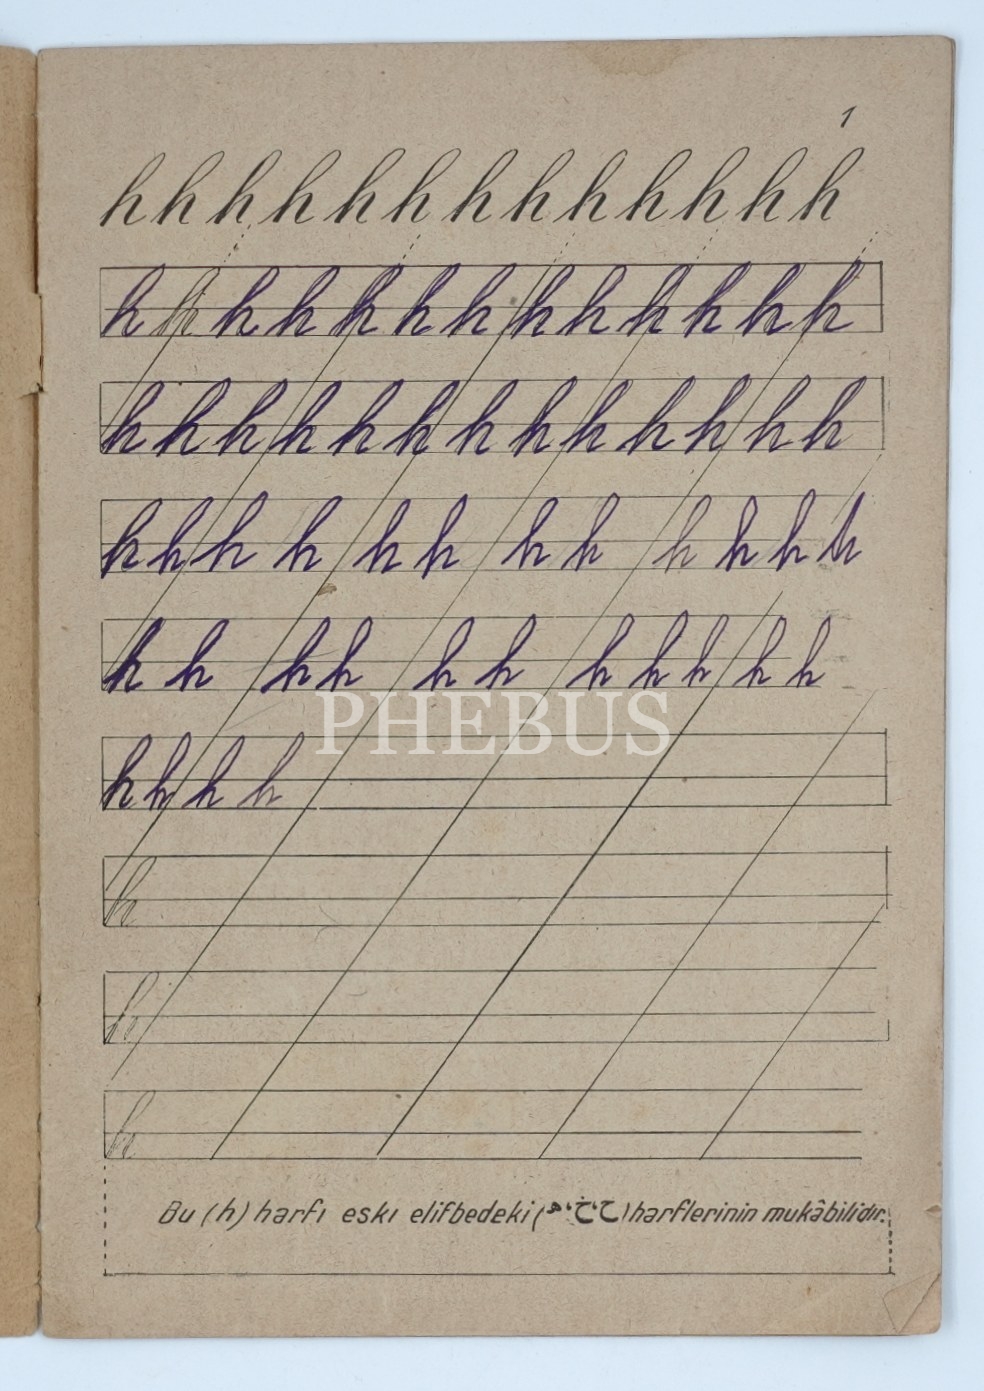 1
h h h h h h h h h h h h h
h h h h h h h h h h h h h
h h h h h h h h h h h h h
h h h h h h h h h h h h
h h h h h h h h h h h
PHEBUS
h h h h
h
h
h
Bu (h) harfı eskı elifbedeki (ح،خ،ه) harflerinin mukâbilidir.